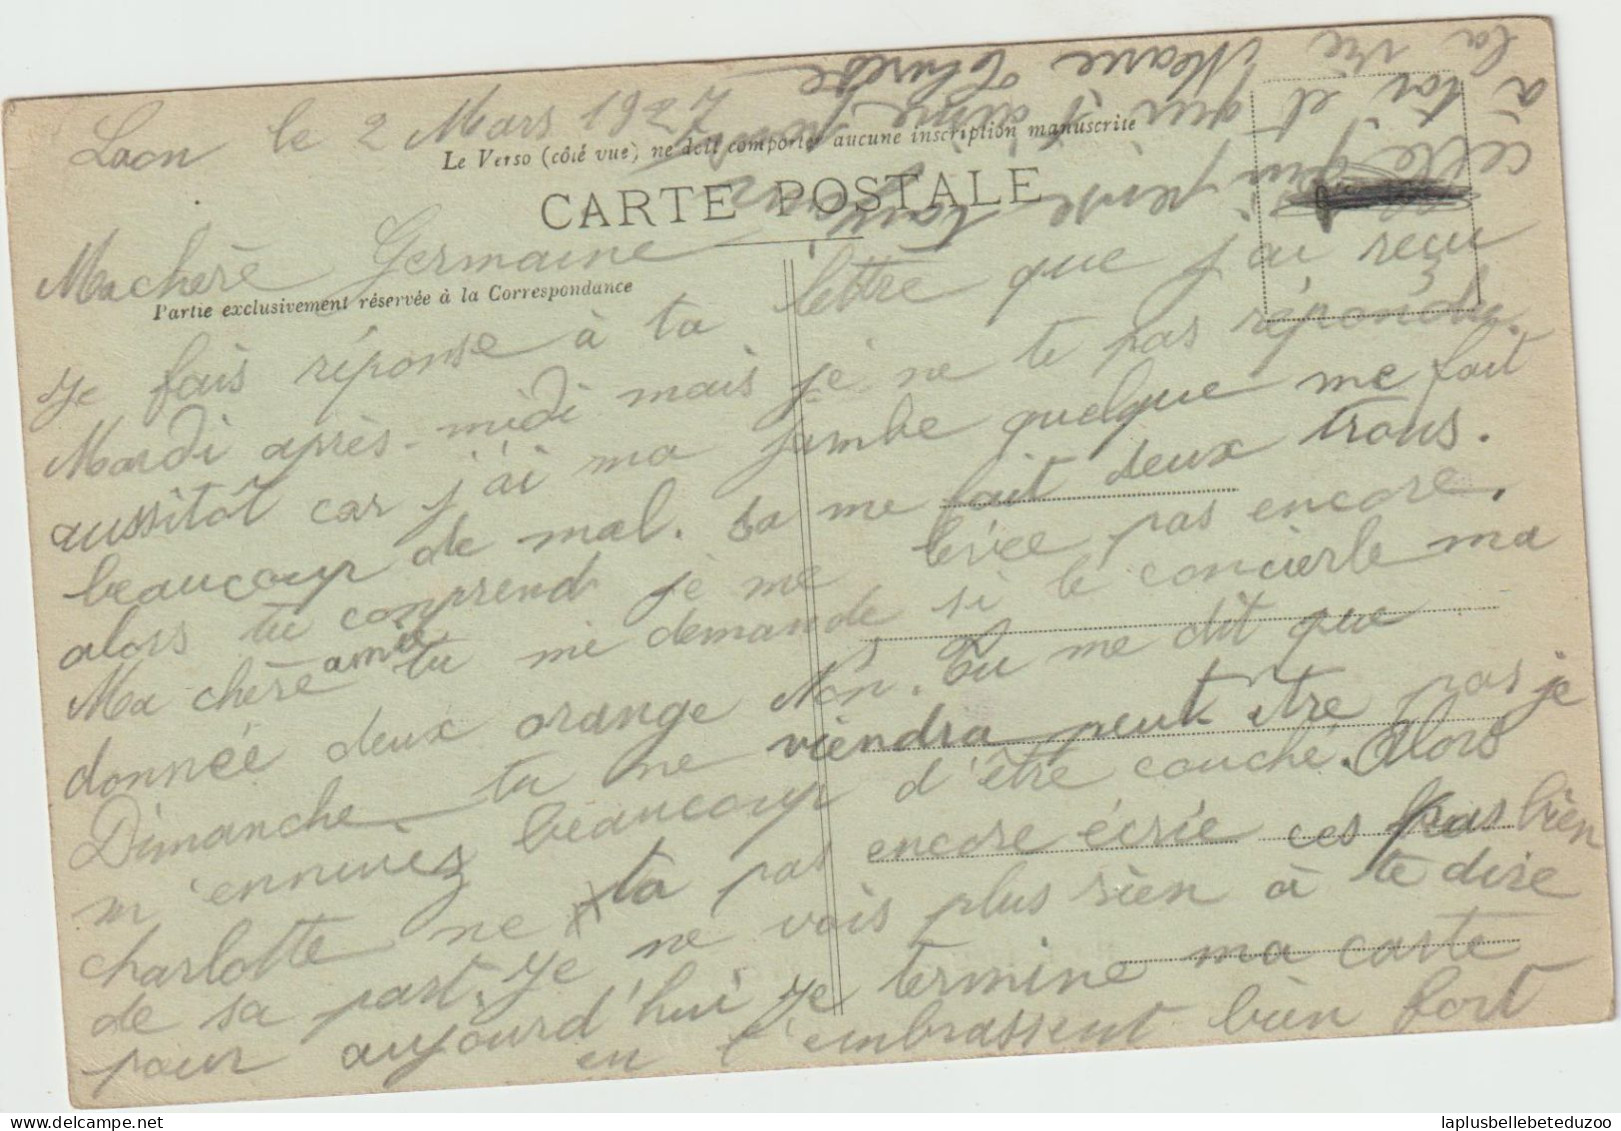 Laon le 2 Mars 1927
Le Verso (côté vue) ne doit comporter aucune inscription manuscrite
CARTE POSTALE
Ma chère Germaine
Partie exclusivement réservée à la Correspondance
Je fais réponse à ta lettre que j'ai recu
Mardi après-midi mais je ne te pas répondu
aussitôt car j'ai ma jambe quelque me fait
beaucoup de mal. sa me fait deux trous.
alors tu comprend je me levée pas encore.
Ma chère amie tu me demande si le concierle ma
donnée deux orange Non. Tu me dit que
Dimanche tu ne viendra peut être pas je
m'ennuiez beaucoup d'être couché. Alors
charlotte ne ta pas encore écrie ces pas bien
de sa part. Je ne vois plus rien à te dire
pour aujourd'hui je termine ma carte
en t'embrassent bien fort
celle qui pense toujours
à toi et qui t'aime pour
la vie Marie Thérèse
laplusbellebeteduzoo